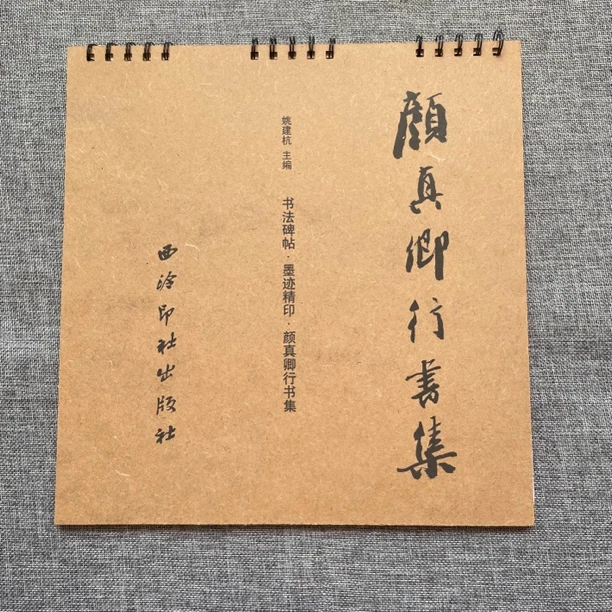 顏真卿行書集
姚建杭 主编
书法碑帖·墨迹精印·颜真卿行书集
西泠印社出版社